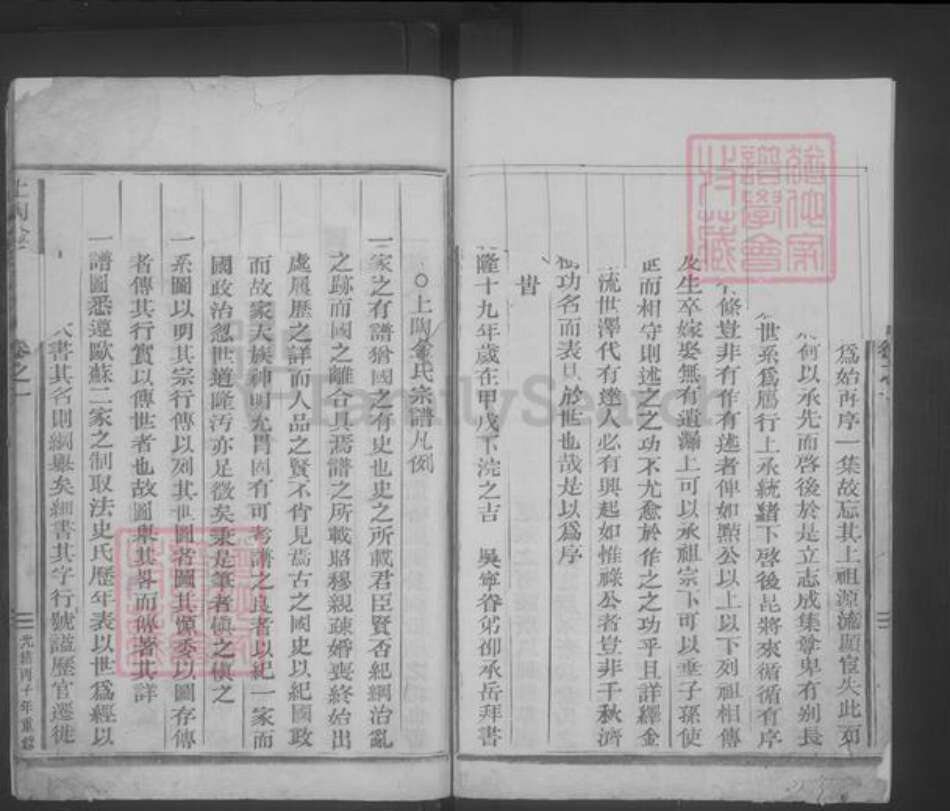 爲始再序一集故忘其上祖源流顯宦失此
何以承先而啓後於是立志成集尊卑有別長
世系爲鴈行上承統緒下啓後昆將來循循有序
條豈非有作有述者俾如點公以上以下列祖相傳
及生卒嫁娶無有遺漏上可以承祖宗下可以垂子孫使
世而相守則述之之功不尤愈於作之之功乎且詳繹金
流世澤代有達人必有興起如惟祿公者豈非千秋濟
功名而表見於世也哉是以爲序
旹
隆十九年歲在甲戌下浣之吉 吳寧眷弟仰承岳拜書
○上陶金氏宗譜凡例
一家之有譜猶國之有史也史之所載君臣賢否紀綱治亂
之跡而國之離合具焉譜之所載昭穆親疎婚喪終始出
處履歷之詳而人品之賢不肖見焉古之國史以紀國政
而故家大族神明元胄固有可考譜之良者以紀一家而
國政治忽世道隆汚亦足徵矣秉是筆者愼之愼之
一系圖以明其宗行傳以列其世圖者圖其源委以圖存傳
者傳其行實以傳世者也故圖舉其畧而傳著其詳
一譜圖悉遵歐蘇二家之制取法史氏歷年表以世爲經以
書其名則綱舉矣細書其字行號謚歷官遷徙
卷之一
光緒丙子年重修
FamilySearch